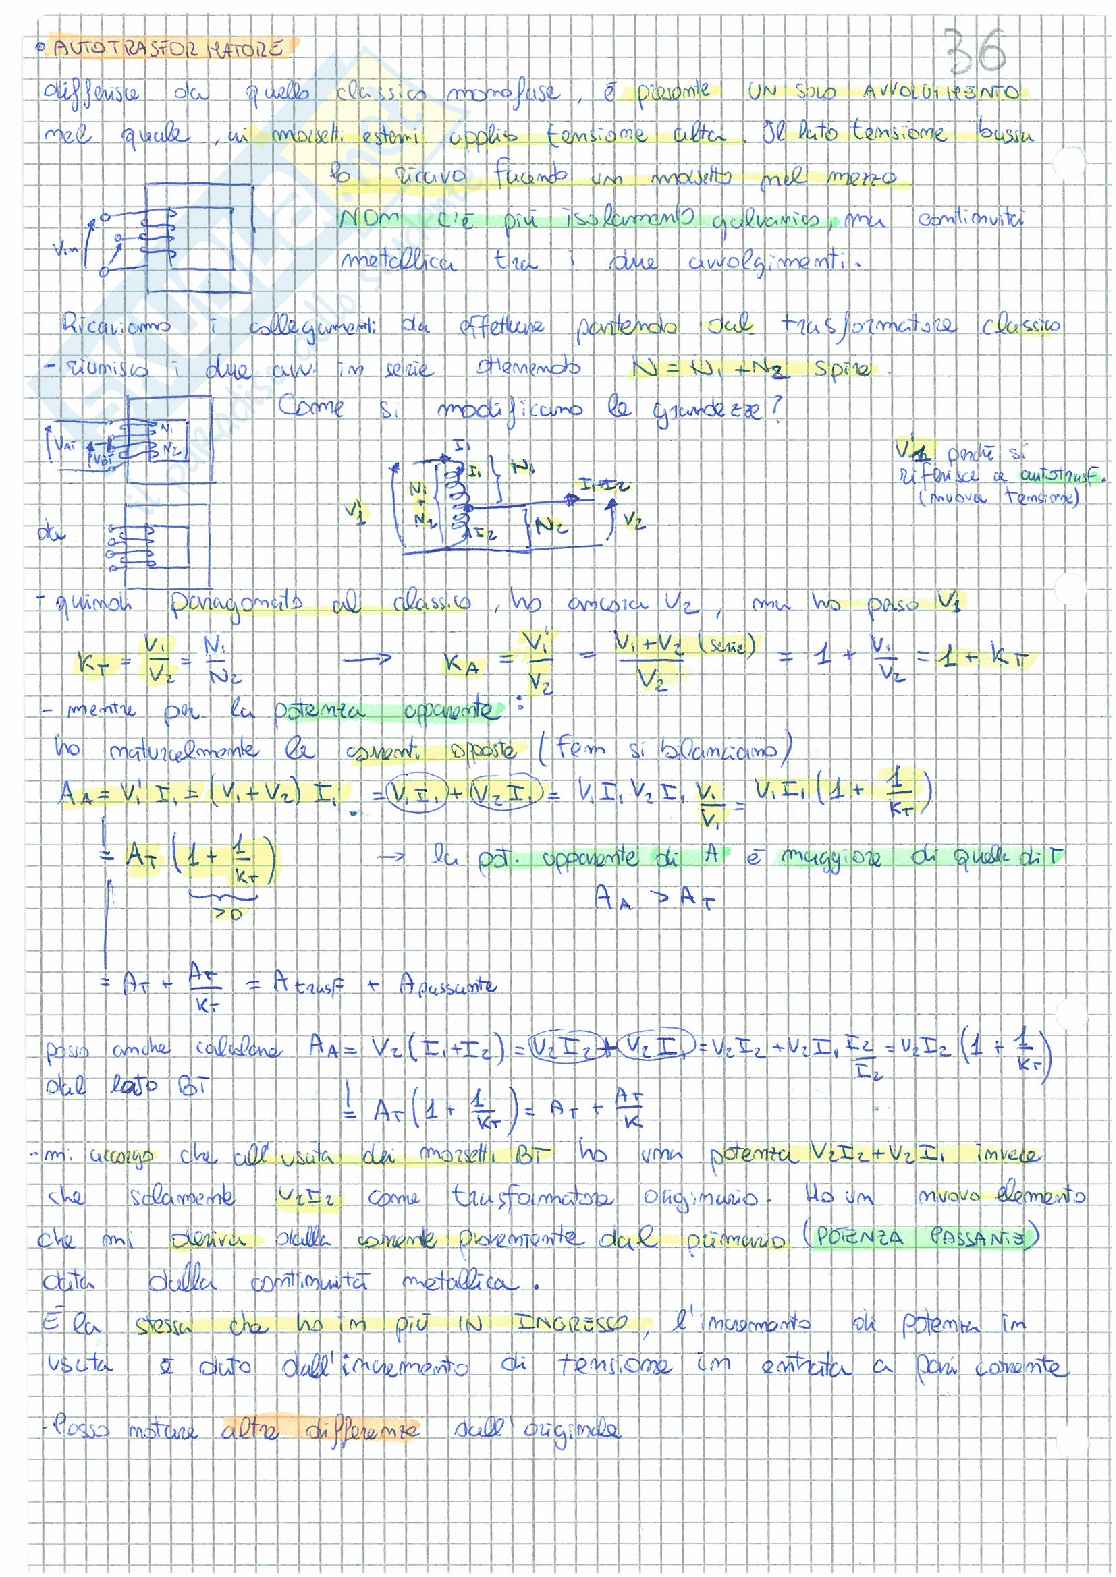 36
• AUTOTRASFORMATORE
differisce da quello classico monofase, è presente UN SOLO AVVOLGIMENTO
nel quale, ai morsetti esterni applico tensione alta. Il lato tensione bassa
lo ricavo facendo un morsetto nel mezzo
NON c'è più isolamento galvanico, ma continuità
metallica tra i due avvolgimenti.
Vin
Ricaviamo i collegamenti da effettuare partendo dal trasformatore classico
- riunisco i due avv. in serie ottenendo N = N1 + N2 spire.
Come si modificano le grandezze?
VAT VBT N1 N2
V'1 perché si
riferisce a autotrasf.
(nuova tensione)
I1 I1 N1 I1+I2
V'1 N1 + N2 I2 N2 V2
da
- quindi paragonato al classico, ho ancora V2, ma ho perso V1
KT = V1/V2 = N1/N2 → KA = V1'/V2 = V1+V2 (serie)/V2 = 1 + V1/V2 = 1 + KT
- mentre per la potenza apparente:
ho naturalmente le correnti opposte (fem si bilanciano)
AA = V1' I1 = (V1+V2) I1 = V1I1 + V2I1 = V1I1 V2I1 V1/V1 = V1I1 (1 + 1/KT)
= AT (1 + 1/KT) → la pot. apparente di A è maggiore di quella di T
>0
AA > AT
= AT + AT/KT = Atrasf + Apassante
posso anche calcolare AA = V2(I1+I2) = V2I2 + V2I1 = V2I2 + V2I1 I2/I2 = V2I2 (1 + 1/KT)
dal lato BT
= AT (1 + 1/KT) = AT + AT/K
- mi accorgo che all'uscita dei morsetti BT ho una potenza V2I2+V2I1 invece
che solamente V2I2 come trasformatore originario. Ho un nuovo elemento
che mi deriva dalla corrente proveniente dal primario (POTENZA PASSANTE)
data dalla continuità metallica.
È la stessa che ho in più IN INGRESSO, l'incremento di potenza in
uscita è dato dall'incremento di tensione in entrata a pari corrente
- Posso notare altre differenze dall'originale